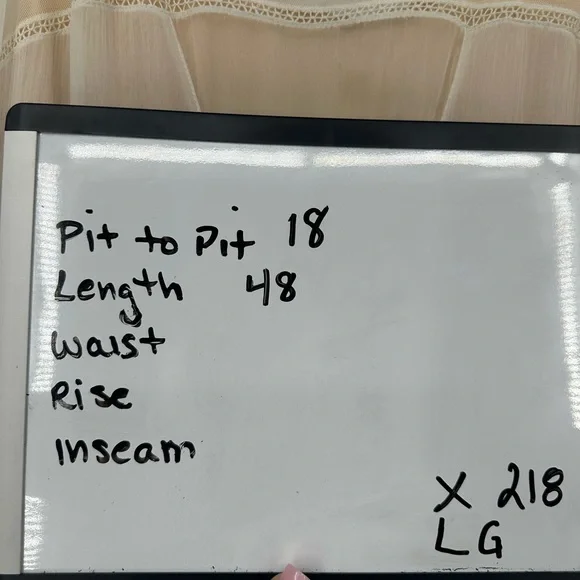 Pit to Pit 18
Length 48
Waist
Rise
Inseam
X 218
LG